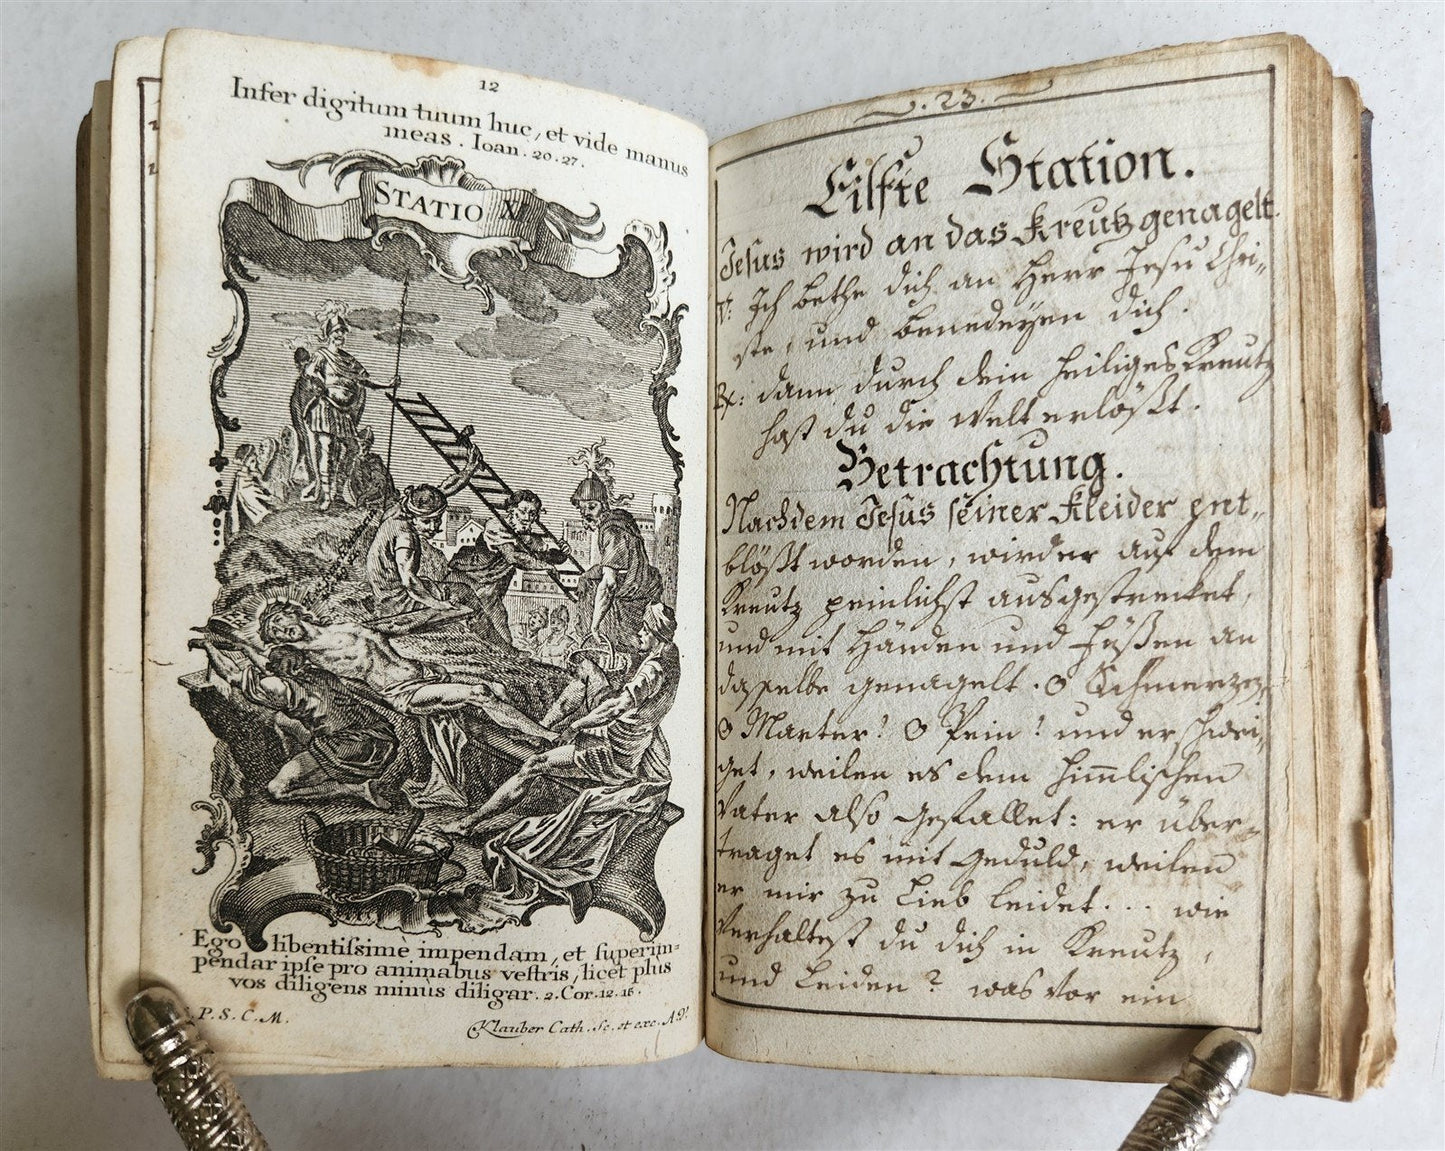 12
Infer digitum tuum huc, et vide manus
meas. Ioan. 20. 27.
STATIO XI
Ego libentiſsimè impendam, et ſuperim=
pendar ipſe pro animabus veſtris, licet plus
vos diligens minùs diligar. 2. Cor. 12. 15.
P. S. C. M.
Klauber Cath. Sc. et exc. A. V.
. 23.
Eilfte Station.
Jeſus wird an das Kreutz genagelt.
V: Ich bethe dich an Herr Jesu Chri=
ste, und benedeyen dich.
Rx: dann durch dein heiliges Kreutz
hast du die Welt erlößt.
Betrachtung.
Nachdem Jeſus ſeiner Kleider ent=
blößt worden, wird er auf dem
Kreutz peinlichst ausgestrecket,
und mit Händen und Füßen an
dasselbe genagelt. O Schmerzen
O Marter! O Pein! und er schwei=
get, weilen es dem himmlischen
Vater also gefallet: er über=
traget es mit Geduld, weilen
er mir zu Lieb leidet... wie
verhaltest du dich in Kreutz,
und Leiden? was vor ein